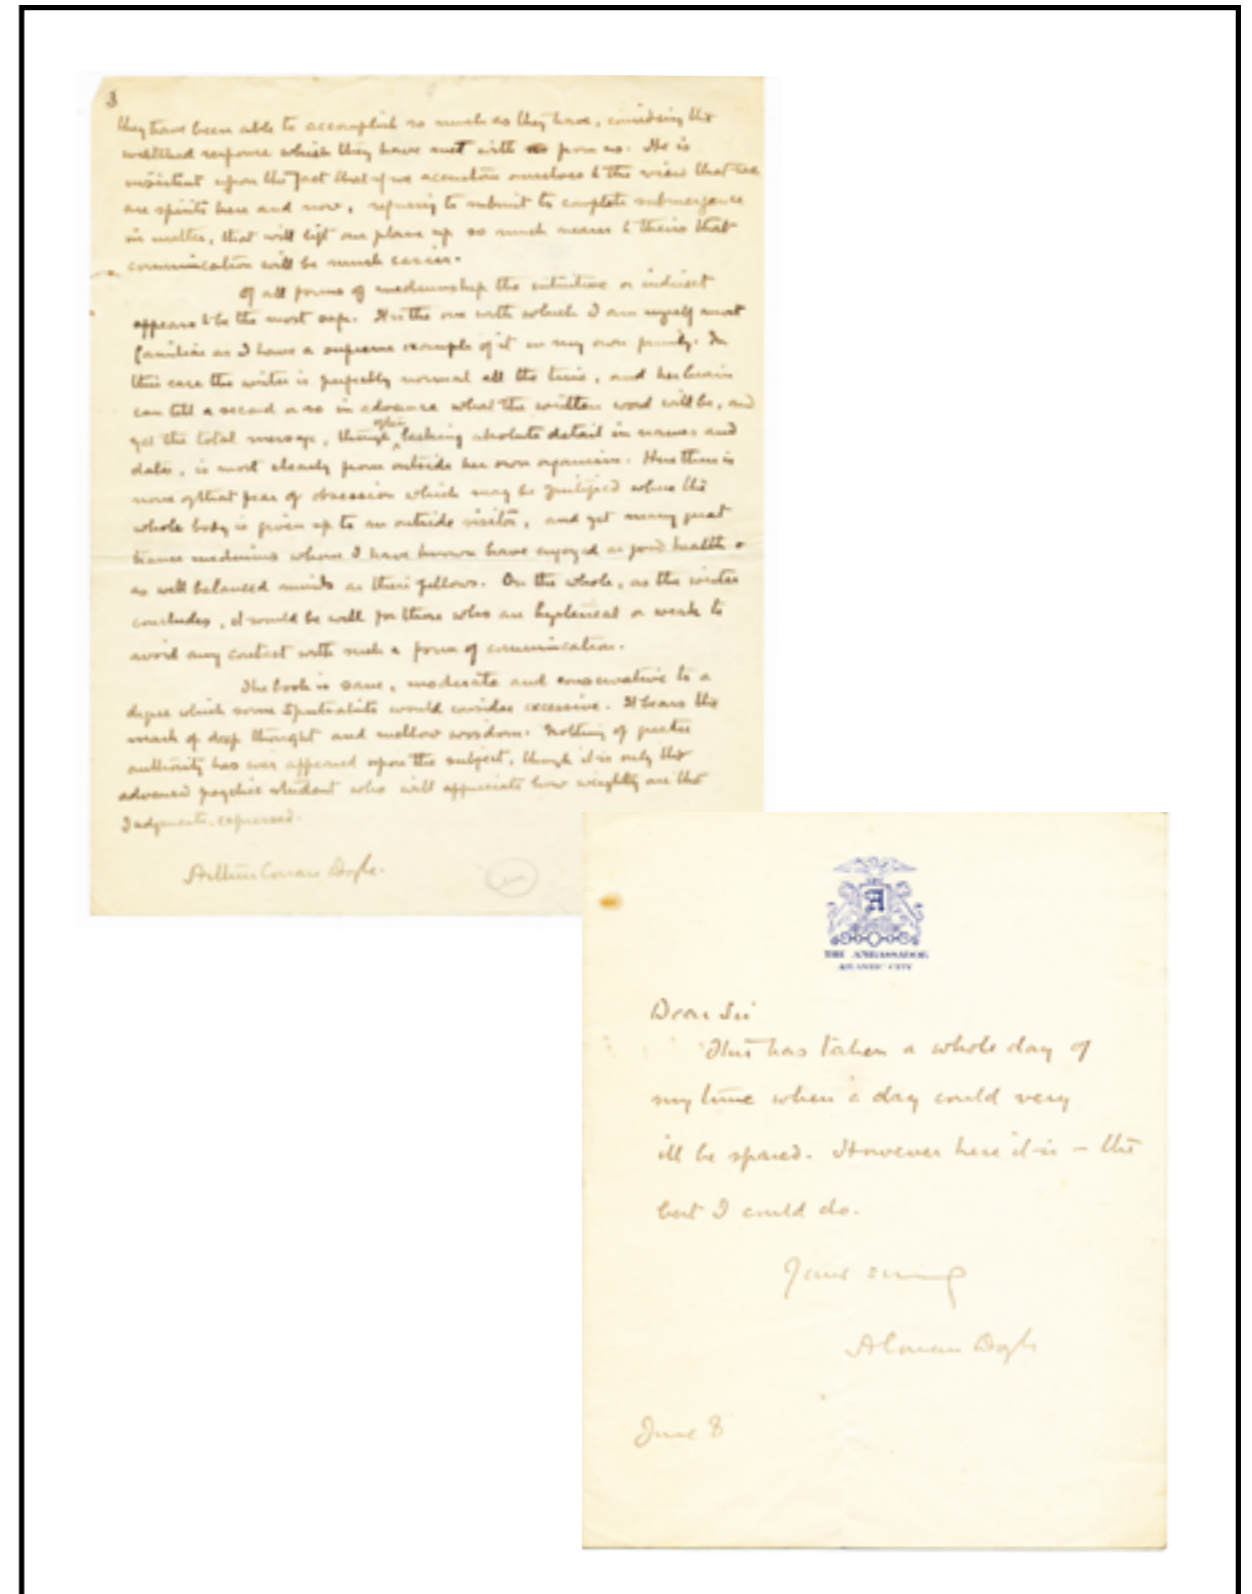 3
they have been able to accomplish so much as they have, considering the
wretched response which they have met with from us. He is
insistent upon the fact that if we accustom ourselves to the view that we
are spirits here and now, refusing to submit to complete submergence
in matter, that will lift our plane up so much nearer to theirs that
communication will be much easier.
Of all forms of mediumship the intuitive or indirect
appears to be the most safe. It is the one with which I am myself most
familiar as I have a supreme example of it in my own family. In
this case the writer is perfectly normal all the time, and her brain
can tell a second or so in advance what the written word will be, and
yet the total message, though often lacking absolute detail in names and
dates, is most clearly from outside her own organism. Here there is
none of that fear of obsession which may be justified where the
whole body is given up to an outside visitor, and yet many great
trance mediums whom I have known have enjoyed as good health &
as well balanced minds as their fellows. On the whole, as the writer
concludes, it would be well for those who are hysterical or weak to
avoid any contact with such a form of communication.
The book is sane, moderate and conservative to a
degree which some Spiritualists would consider excessive. It bears the
mark of deep thought and mellow wisdom. Nothing of greater
authority has ever appeared upon the subject, though it is only the
advanced psychic student who will appreciate how weighty are the
Judgments expressed.
Arthur Conan Doyle.
A
THE AMBASSADOR
ATLANTIC CITY
Dear Sir
This has taken a whole day of
my time when a day could very
ill be spared. However here it is – the
best I could do.
Yours sincerely
A Conan Doyle
June 8